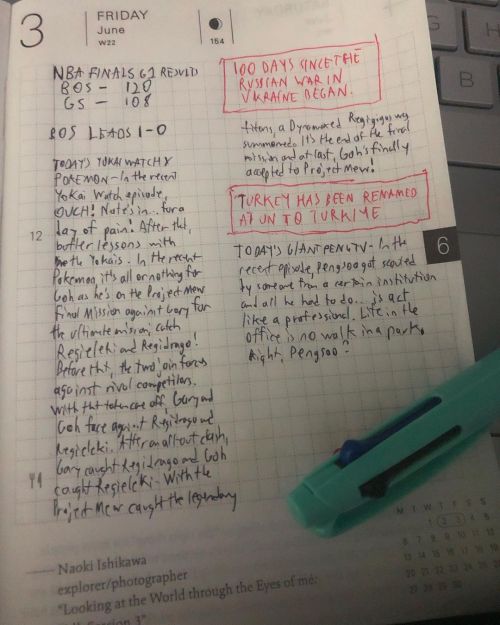 3
FRIDAY
June
W22
154
NBA FINALS G1 RESULTS
BOS - 120
GS - 108
BOS LEADS 1-0
TODAY'S YOKAI WATCH Y
POKEMON - In the recent
Yokai Watch episode,
OUCH! Nate's in... for a
day of pain! After tht,
butler lessons with
the Yokais. In the recent
Pokemon, it's all or nothing for
Goh as he's on the Project Mew
Final Mission against Gary for
the ultimate mission, catch
Regieleki and Regidrago!
Before tht, the two join forces
against rival competitors.
With tht taken care off, Gary and
Goh face against Regidrago and
Regieleki. After an all out clash,
Gary caught Regidrago and Goh
caught Regieleki. With the
Project Mew caught the legendary
12
100 DAYS SINCE THE
RUSSIAN WAR IN
UKRAINE BEGAN.
titans, a Dynamaxed Regigigas was
summoned. It's the end of the final
mission and at last, Goh's finally
accepted to Project Mew!
TURKEY HAS BEEN RENAMED
AT UN TO TURKIYE
6
TODAY'S GIANT PENG TV - In the
recent episode, Pengsoo got scouted
by someone from a certain institution
and all he had to do... is act
like a professional. Life in the
office is no walk in a park.
Right, Pengsoo?
Naoki Ishikawa
explorer/photographer
"Looking at the World through the Eyes of me:
M T W T F S S
1 2 3 4 5
6 7 8 9 10 11 12
13 14 15 16 17 18 19
20 21 22 23 24 25 26
27 28 29 30
B